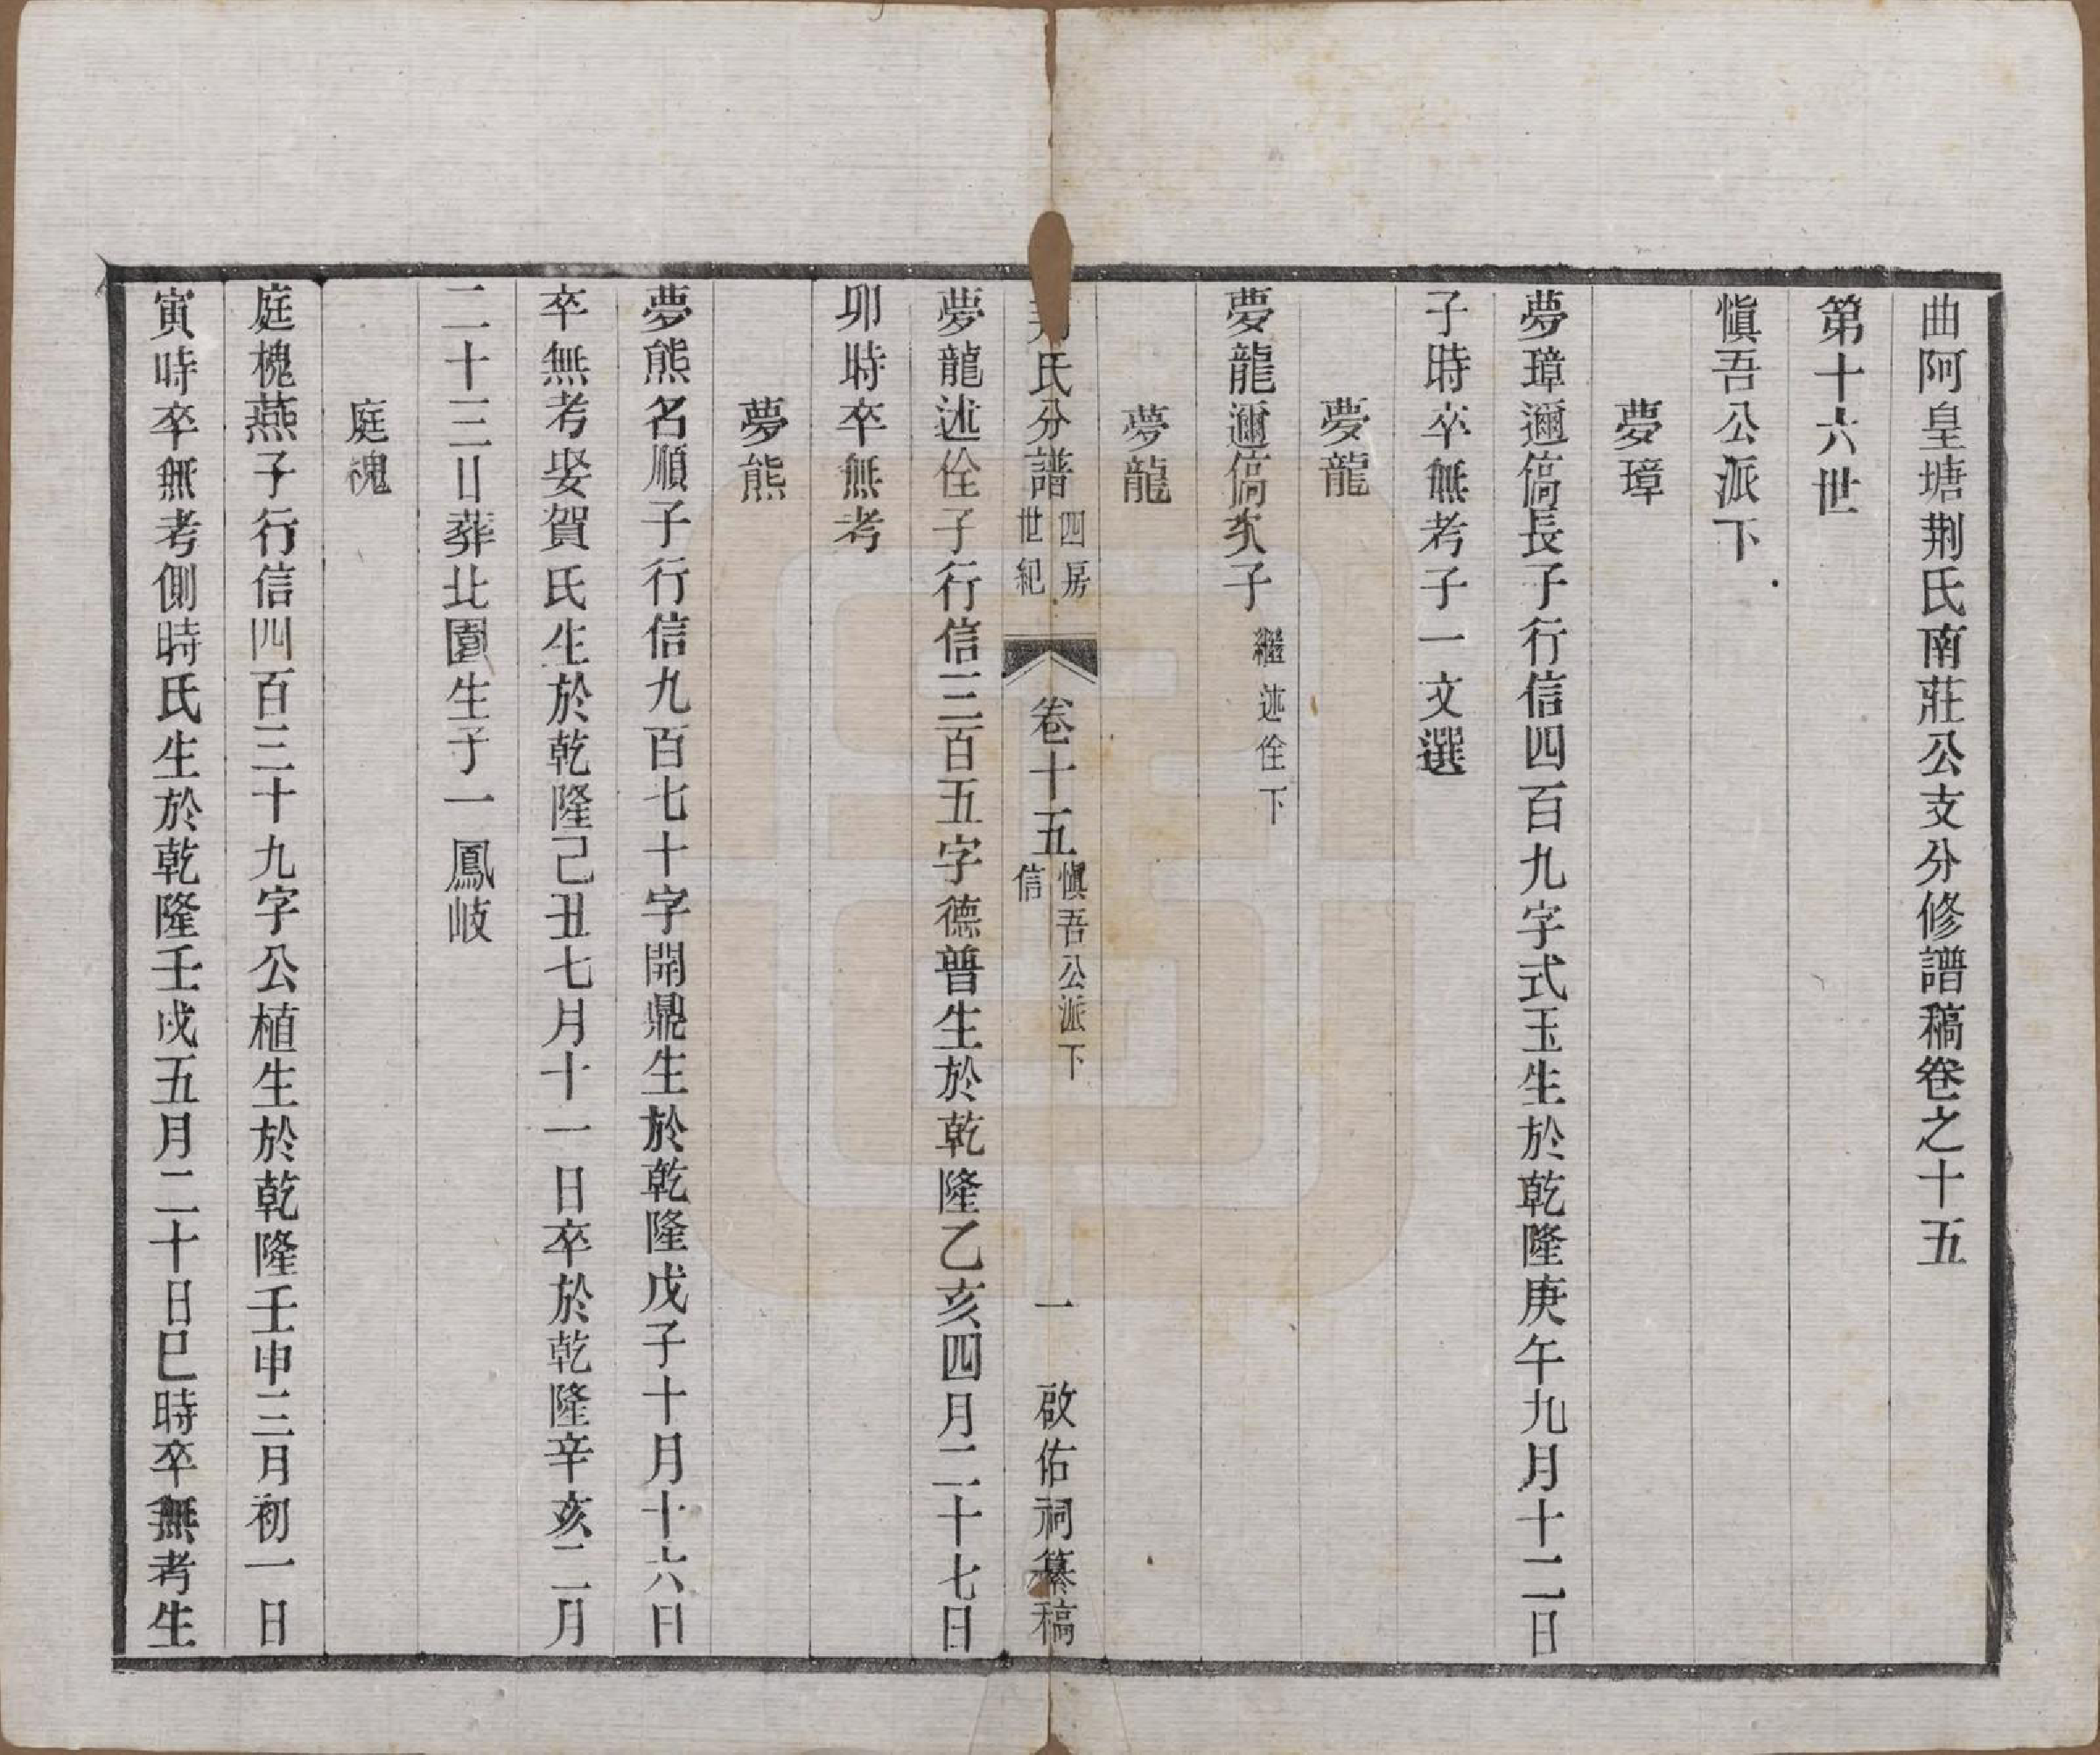 曲阿皇塘荆氏南莊公支分修譜稿卷之十五
第十六世
愼吾公派下
夢璋
夢璋邇傐長子行信四百九字式玉生於乾隆庚午九月十二日
子時卒無考子一文選
夢龍
夢龍邇傐次子繼述佺下
夢龍
氏分譜
四房
世紀
卷十五
愼吾公派下
信
一
啟佑祠纂稿
夢龍述佺子行信三百五字德普生於乾隆乙亥四月二十七日
卯時卒無考
夢熊
夢熊名順子行信九百七十字開鼎生於乾隆戊子十月十六日
卒無考娶賀氏生於乾隆己丑七月十一日卒於乾隆辛亥二月
二十三日葬北園生子一鳳岐
庭槐
庭槐燕子行信四百三十九字公植生於乾隆壬申三月初一日
寅時卒無考側時氏生於乾隆壬戌五月二十日巳時卒無考生